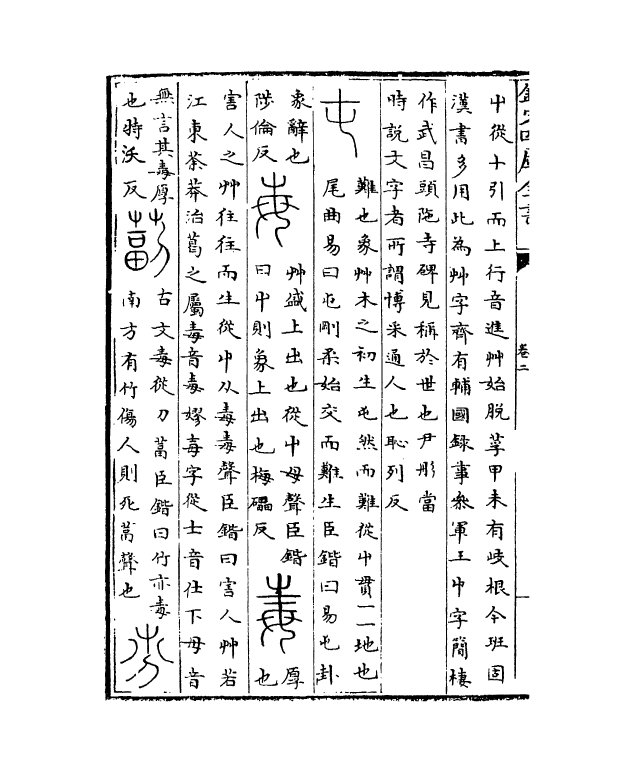 欽定四庫全書
卷二
屮從丨引而上行音進艸始脫莩甲未有歧根今班固
漢書多用此為艸字齊有輔國錄事參軍王屮字簡棲
作武昌頭陁寺碑見稱於世也尹彤當
時說文字者所謂博采通人也恥列反
屯
難也象艸木之初生屯然而難從屮貫一一地也
尾曲易曰屯剛柔始交而難生臣鍇曰易屯卦
彖辭也
陟倫反
每
艸盛上出也從屮母聲臣鍇
曰屮則象上出也梅磥反
毒
厚
也
害人之艸往往而生從屮从毒毒聲臣鍇曰害人艸若
江東荼莽治葛之屬毒音毒嫪毐字從士音仕下毋音
無言其毒厚
也特沃反
古文毒從刀葍臣鍇曰竹亦毒
南方有竹傷人則死葍聲也